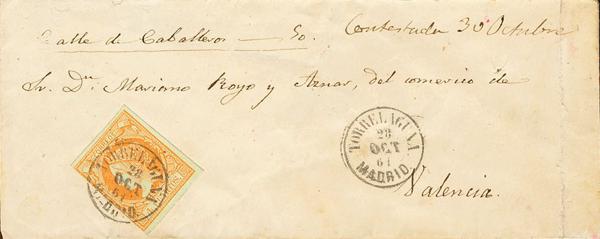 Calle de Caballeros — 50. Contestada 30 Octubre
Sr. Dn. Mariano Royo y Aznar, del comercio de
Valencia.
TORRELAGUNA
28
OCT
61
MADRID.
TORRELAGUNA
28
OCT
61
MADRID.